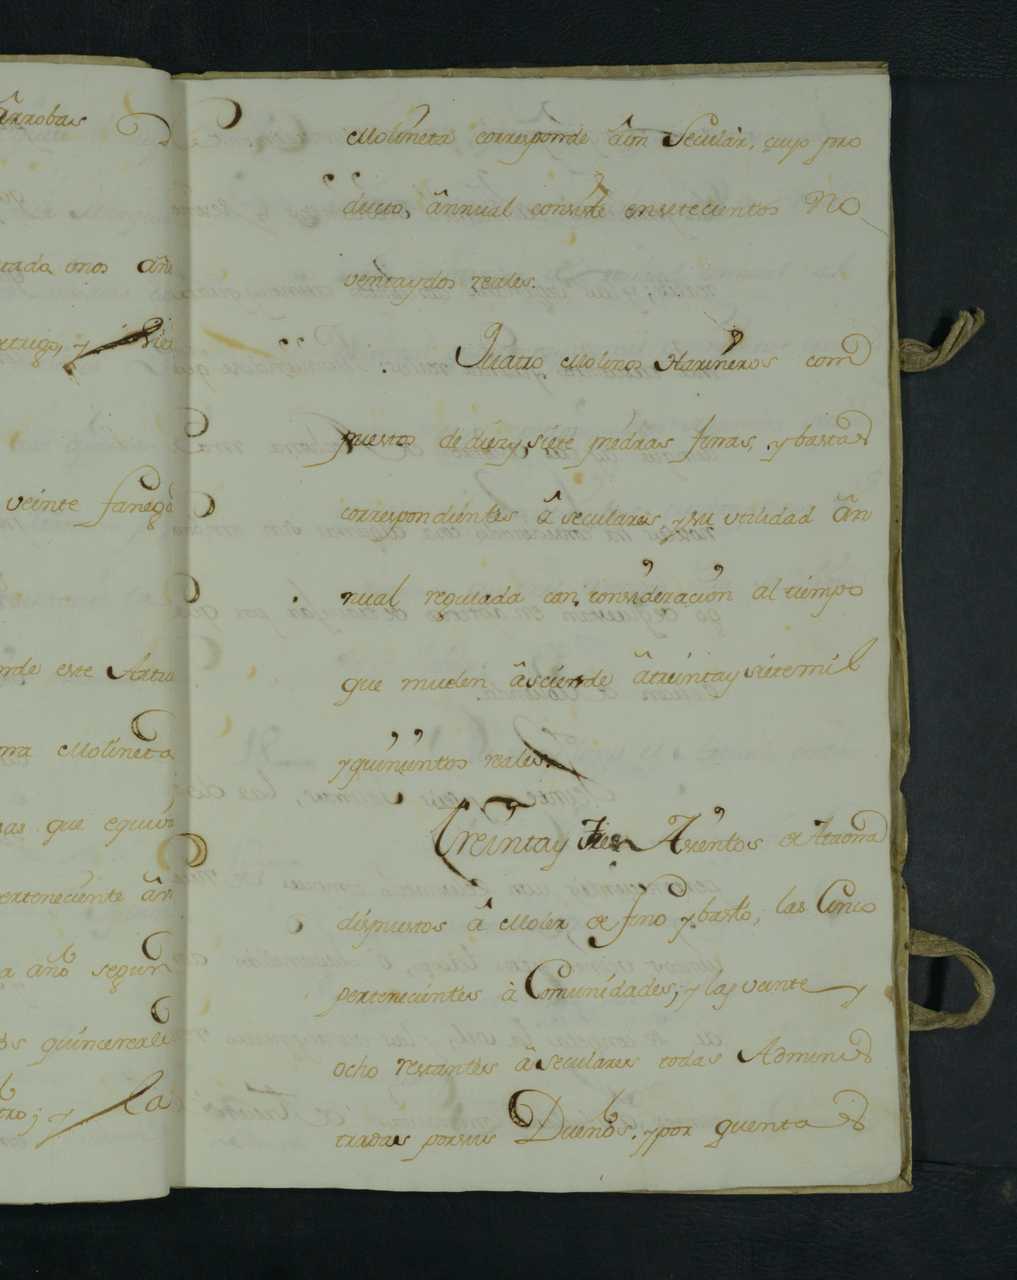 arrobas
tada unos añ
veinte faneg
rde este Artu
rra Molineta
sas que equiv
perteneciente àn
a año segun
es quincereale
tro; y la
Molineta corresponde à un Secular, cuyo pro
ducto, ànnual consiste ensetecientos No
ventaydos reales.
Quatro Molinos Harineros com
puestos de diezy siete piedras finas, y bastas
correspondientes à seculares, y su utilidad àn
nual regulada con consideracion al tiempo
que muelen àsciende àtreintay sietemil
yquinientos reales.
Treintay tres Asientos de Ataona
dispuestos à Moler de fino y basto, las Cinco
pertenecientes à Comunidades; y las veinte y
ocho restantes à seculares todas Adminis
tradas porsus Dueños, ypor quenta